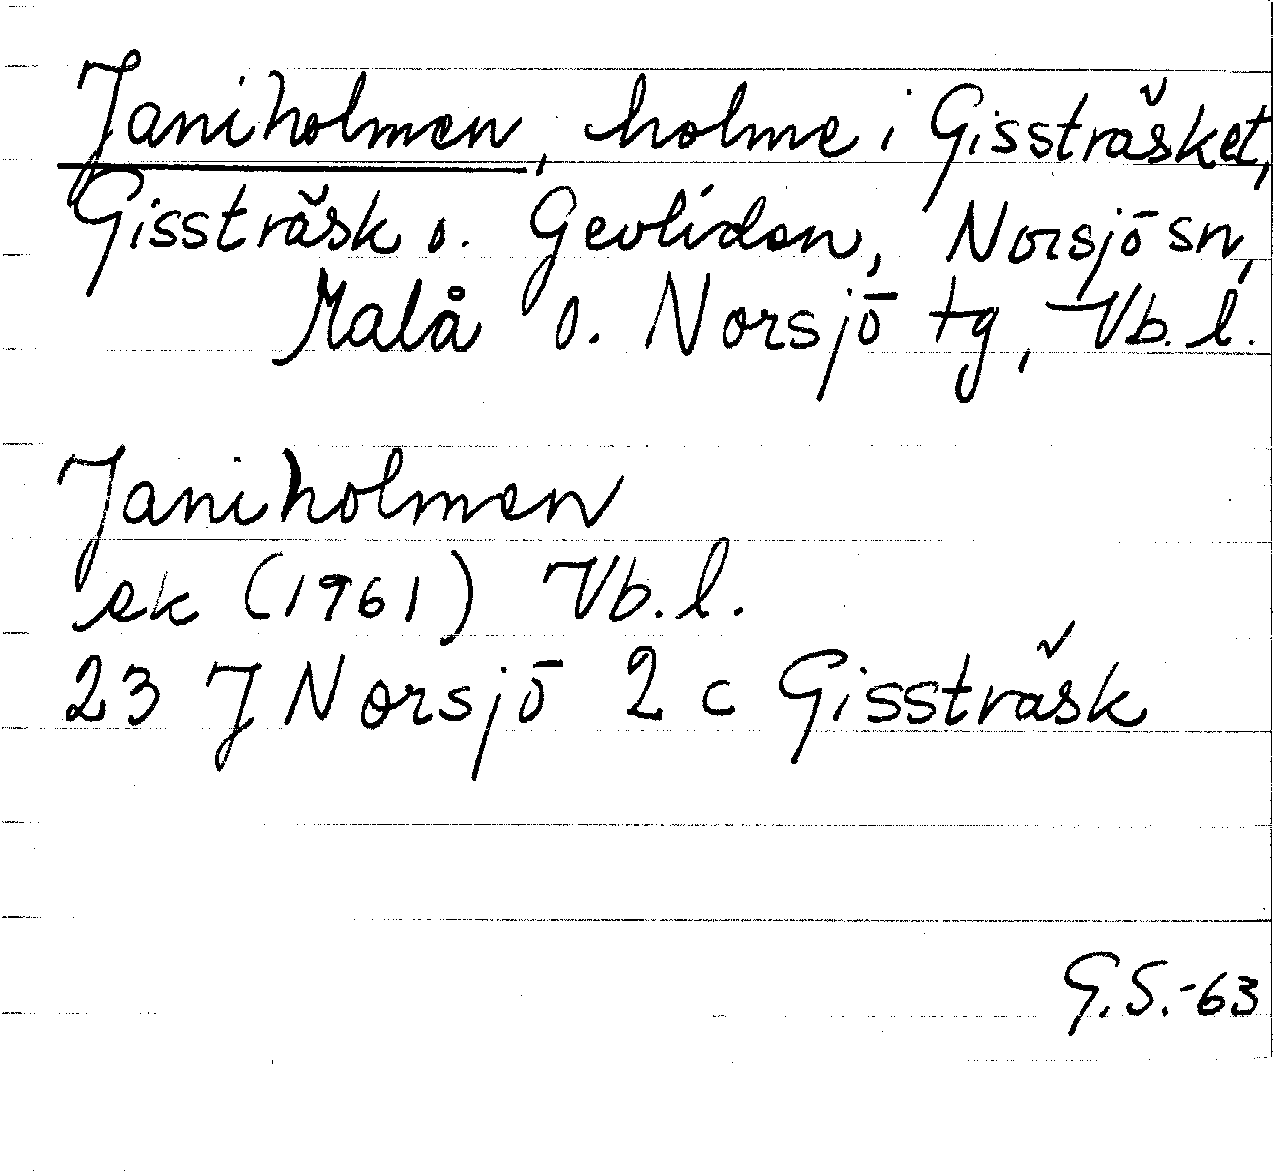 Janiholmen, holme i Gissträsket,
Gissträsk o. Gevliden, Norsjö sn,
Malå o. Norsjö tg, Vb. l.
Janiholmen
ek (1961) Vb. l.
23 J Norsjö 2 c Gissträsk
G.S.-63